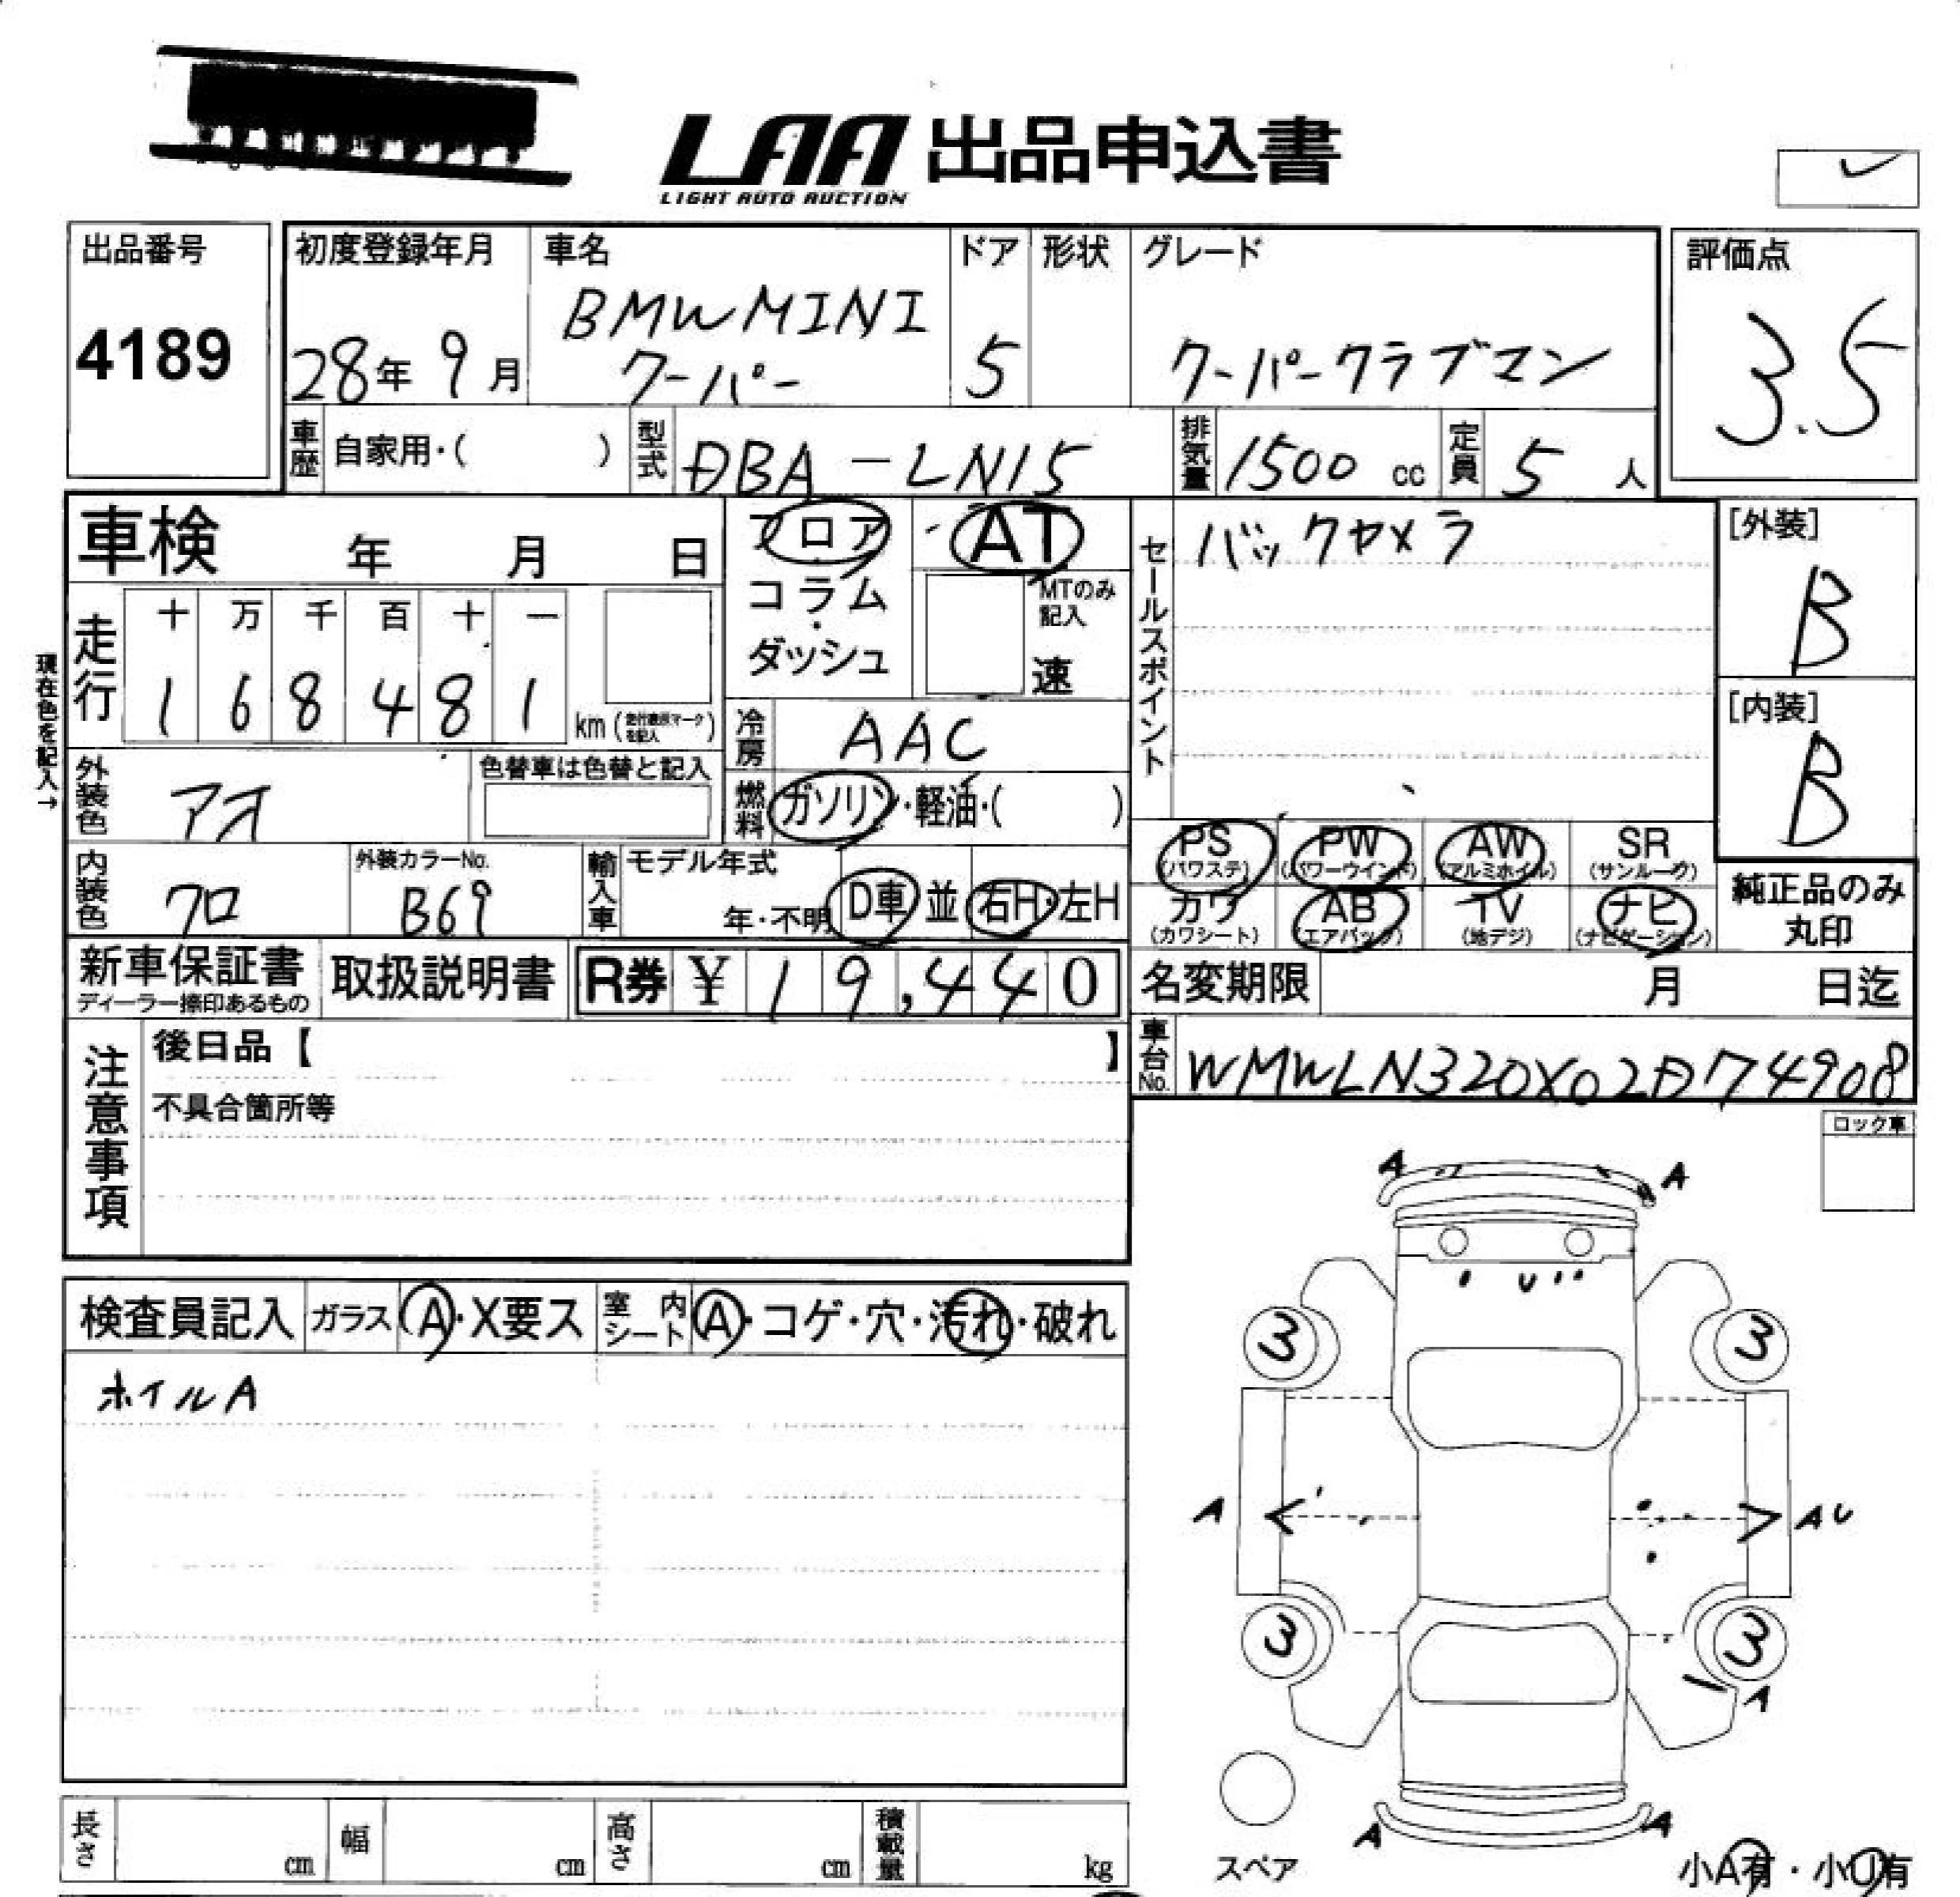 LAA 出品申込書
LIGHT AUTO AUCTION
出品番号
4189
初度登録年月
28年 9月
車名
BMW MINI
クーパー
ドア
5
形状
グレード
クーパークラブマン
評価点
3.5
車歴 自家用・( )
型式 DBA-LN15
排気量 1500 cc
定員 5 人
車検 年 月 日
フロア
コラム
・
ダッシュ
AT
MTのみ
記入
速
セールスポイント
バックカメラ
[外装]
B
[内装]
B
現在色を記入→
走行
十 万 千 百 十 一
1 6 8 4 8 1
km (走行違反マークを記入)
冷房 AAC
外装色 アオ
色替車は色替と記入
燃料 ガソリン・軽油・( )
内装色 クロ
外装カラーNo.
B69
輸入車
モデル年式
年・不明
D車 並
右H・左H
PS
(パワステ)
PW
(パワーウインド)
AW
(アルミホイル)
SR
(サンルーフ)
カワ
(カワシート)
AB
(エアバック)
TV
(地デジ)
ナビ
(ナビゲーション)
純正品のみ
丸印
新車保証書
ディーラー捺印あるもの
取扱説明書
R券 ¥ 19,440
名変期限 月 日迄
車台No. WMWLN320X02D74908
注意事項
後日品【 】
不具合箇所等
ロック車
検査員記入
ガラス A・X要ス
室内シート A・コゲ・穴・汚れ・破れ
ホイルA
A A
3 3
A AU
3 3
A
A A
スペア
小A有・小U有
長さ cm
幅 cm
高さ cm
積載量 kg